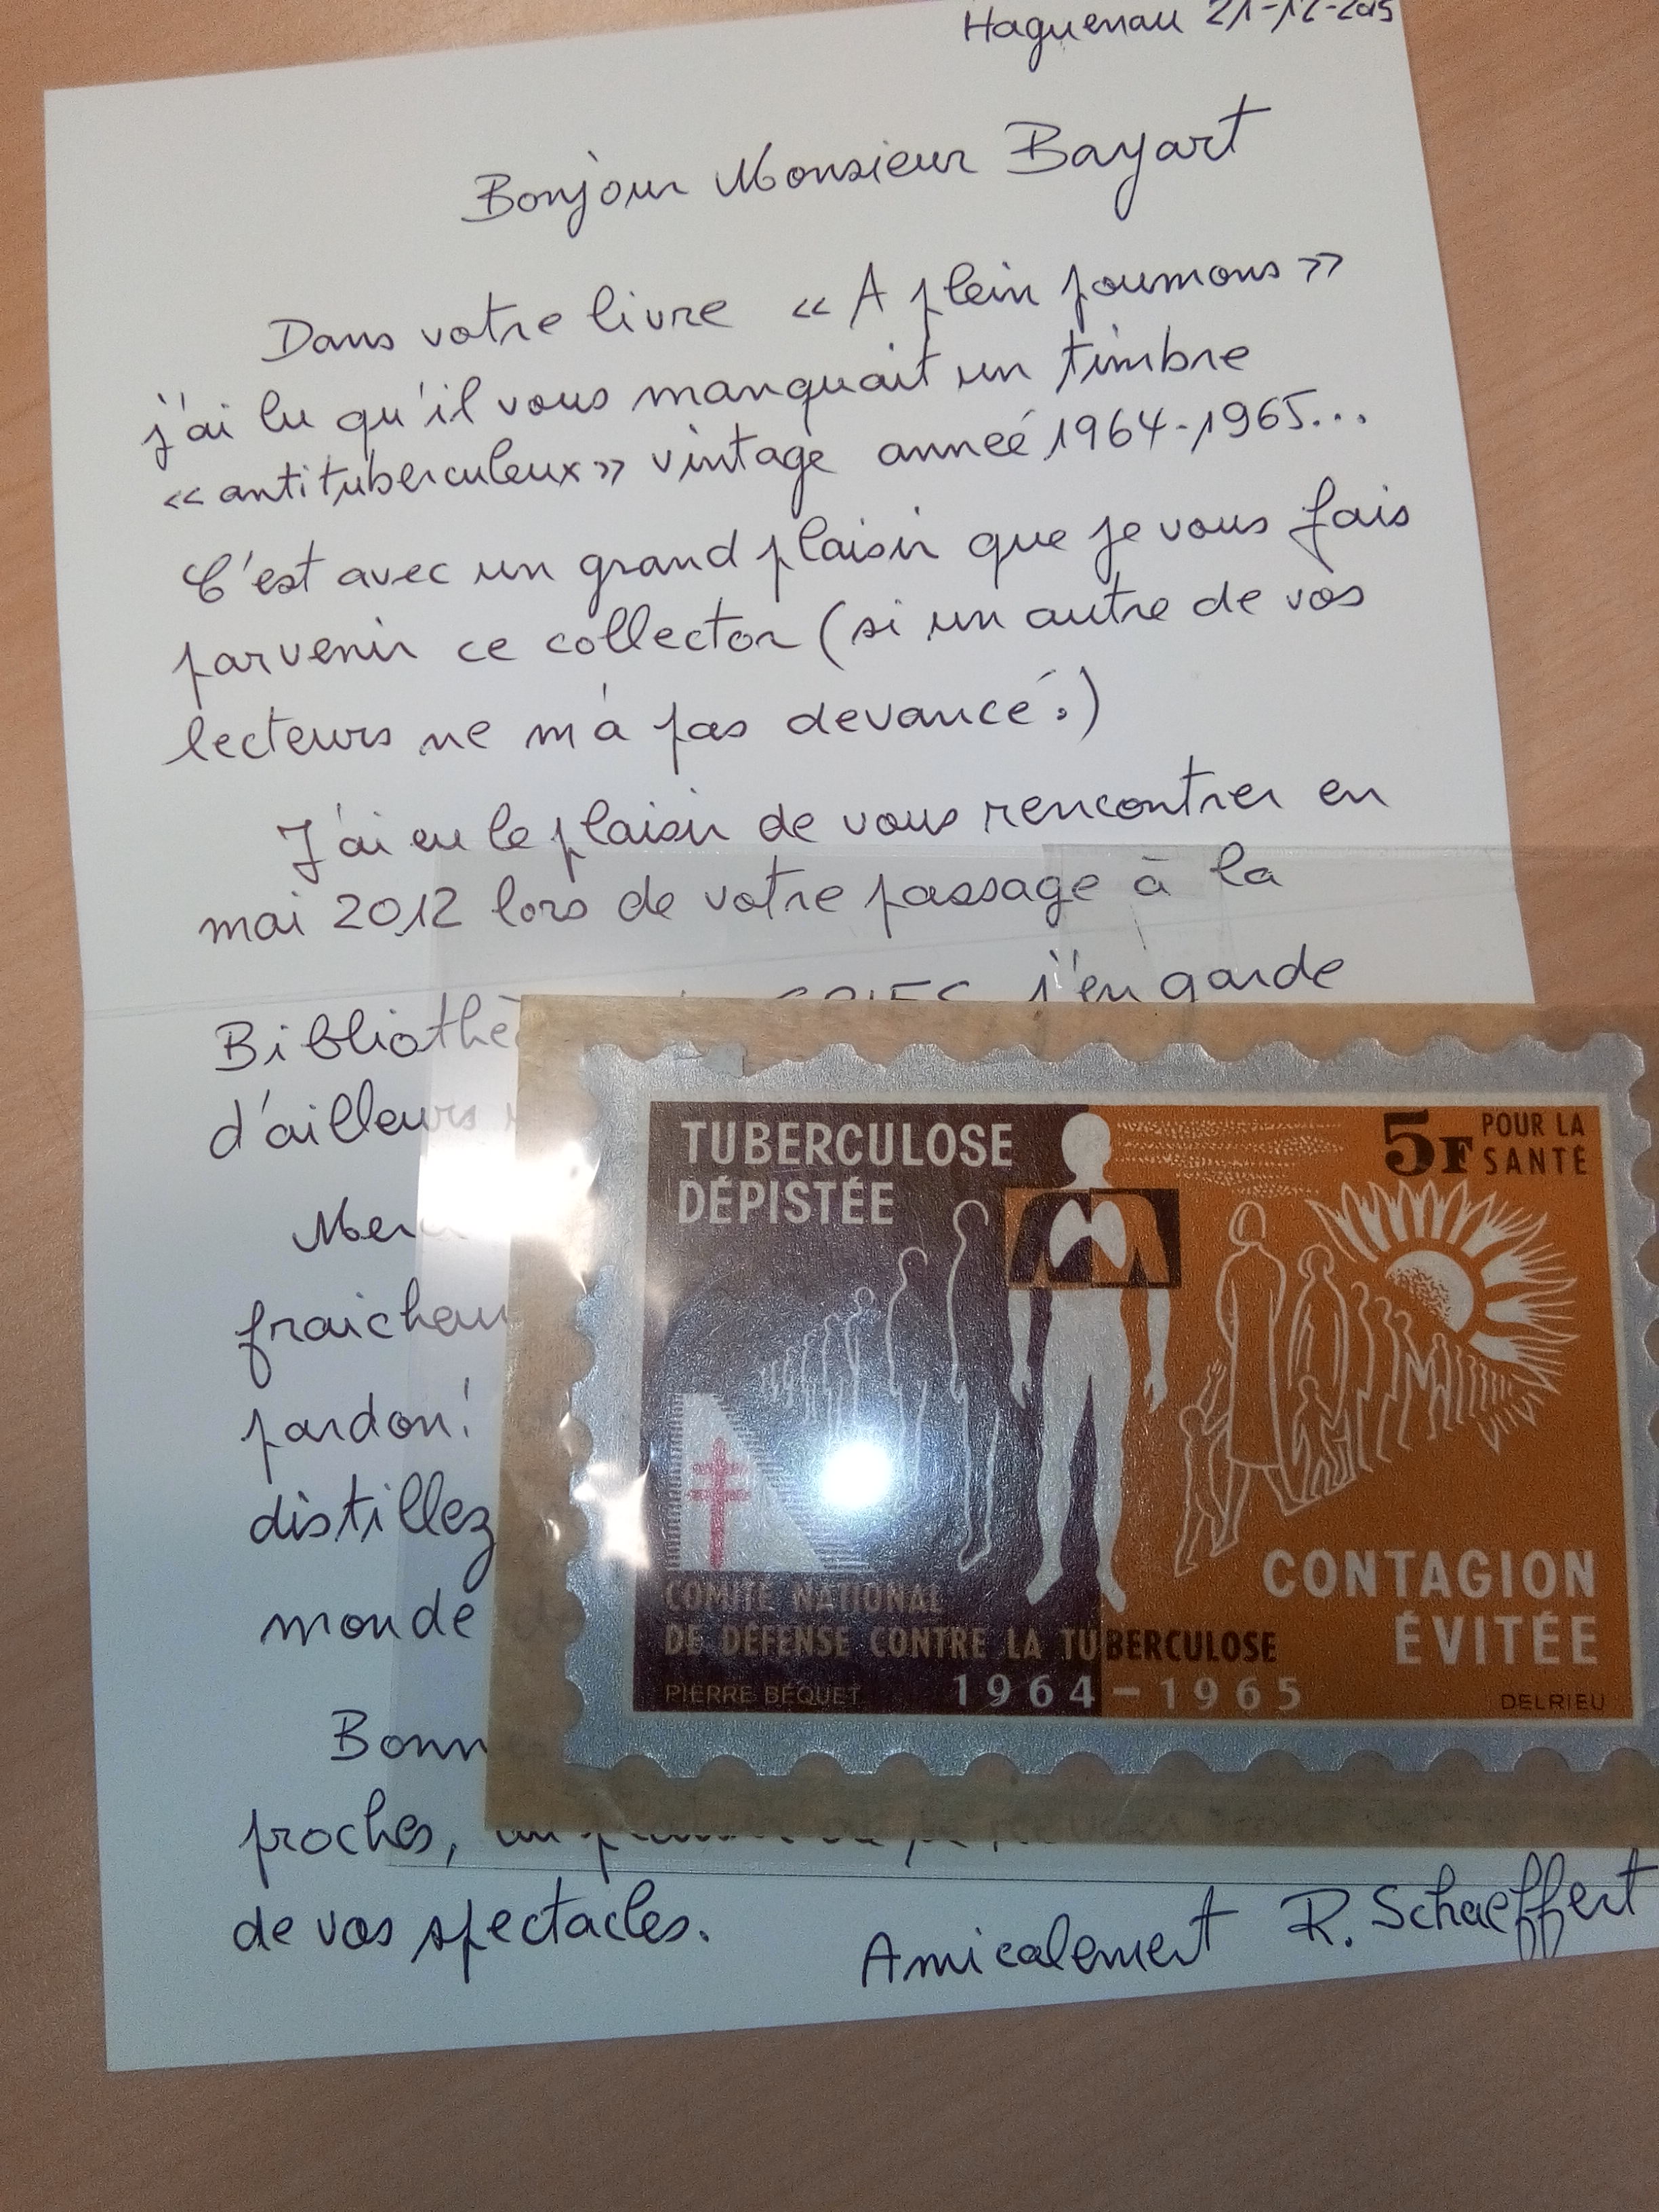 Haguenau 21-12-2015
Bonjour Monsieur Bayart
Dans votre livre « A plein poumons »
j'ai lu qu'il vous manquait un timbre
« antituberculeux » vintage année 1964-1965...
C'est avec un grand plaisir que je vous fais
parvenir ce collector (si un autre de vos
lecteurs ne m'a pas devancé.)
J'ai eu le plaisir de vous rencontrer en
mai 2012 lors de votre passage à la
j'en garde
d'ailleurs
pardon!
distillez
monde
proches,
de vos spectacles.
Amicalement R. Schaeffert
TUBERCULOSE
DÉPISTÉE
5F POUR LA
SANTÉ
COMITÉ NATIONAL
DE DÉFENSE CONTRE LA TUBERCULOSE
CONTAGION
ÉVITÉE
PIERRE BÉQUET
1964-1965
DELRIEU